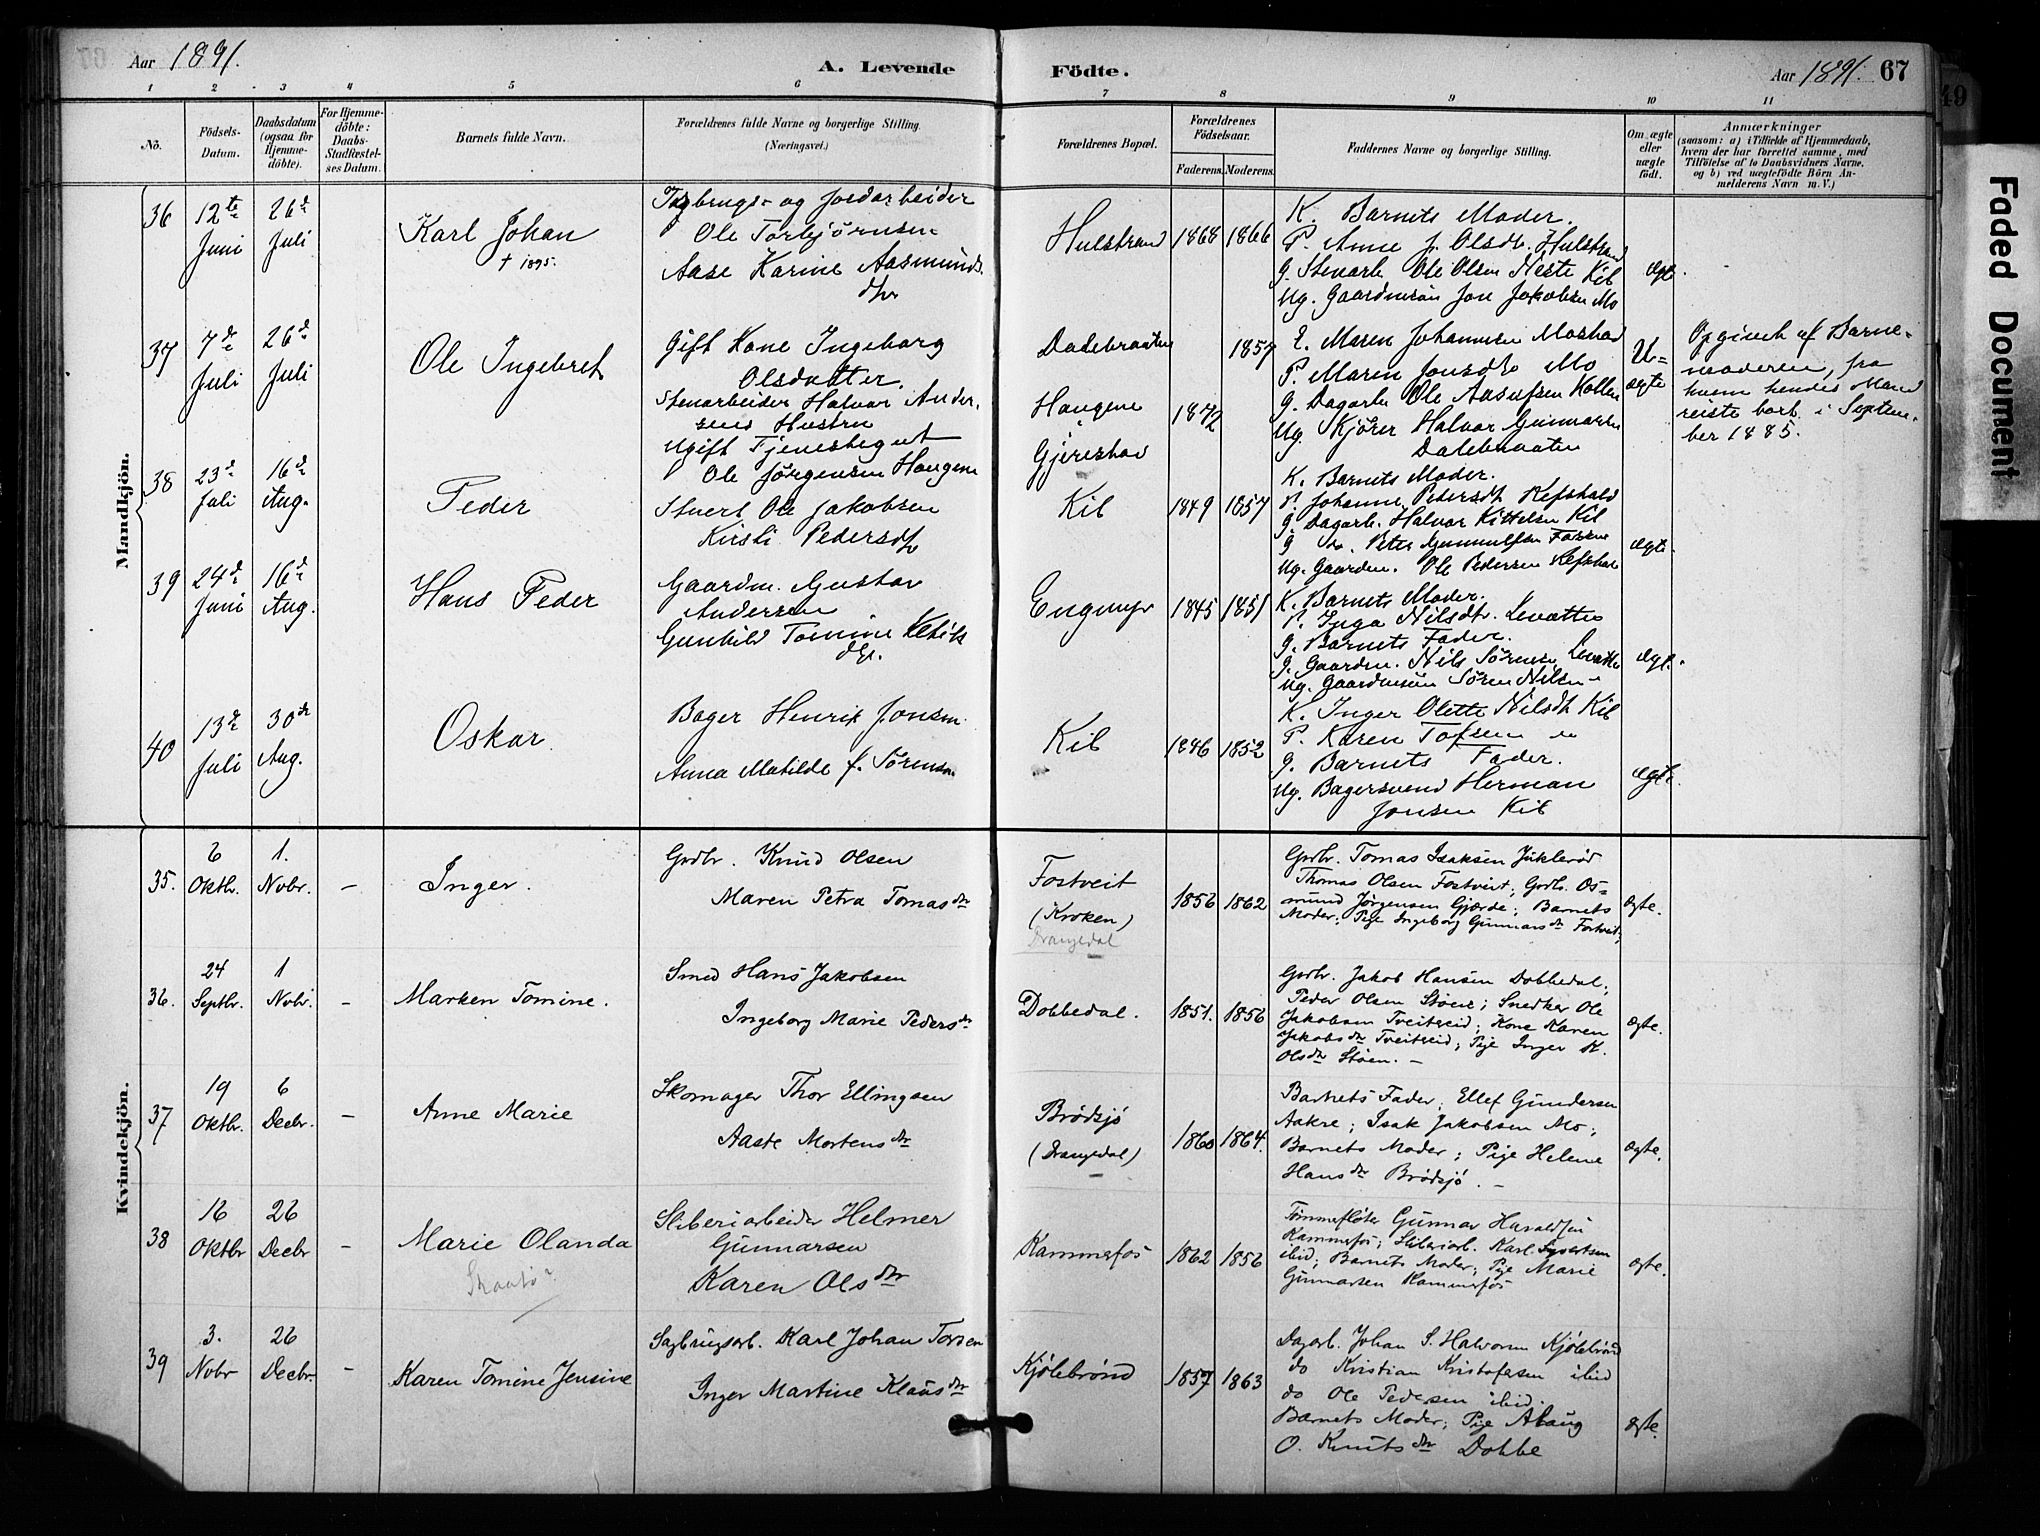 Aar 1891.
A. Levende Födte.
Aar 1891. 67
49
1 2 3 4 5 6 7 8 9 10 11
Nö.
Födsels-Datum.
Daabsdatum (ogsaa for Hjemmedöbte).
For Hjemmedöbte: Daabs-Stadfæstelses Datum.
Barnets fulde Navn.
Forældrenes fulde Navne og borgerlige Stilling.
(Næringsvei.)
Forældrenes Bopæl.
Forældrenes Födselsaar.
Faderens. Moderens.
Faddernes Navne og borgerlige Stilling.
Om ægte eller uægte födt.
Anmærkninger
(saasom: a) i Tilfælde af Hjemmedaab,
hvem der har forrettet samme, med
Tilföielse af to Daabsvidners Navne,
og b) ved uægtefödte Börn An-
melderens Navn m. V.)
Mandkjön.
36
12te Juni
26de Juli
Karl Johan
† 1895.
Ole Torbjørnsen
Aase Karine Aasmunds
dtr
Hulstrand
1868 1866
K. Barnets Moder.
P. Anne J. Olsdt. Hulstrand
G. Stenarb. Ole Olsen Neste Kil
Ug. Gaardmsøn Jon Jakobsen Mo
ægte
37
7de Juli
26de Juli
Ole Ingebret
Gift Kone Ingeborg
Olsdatter.
Stenarbeider Halvor Ander-
sens Hustru
Ugift Tjenestegut
Ole Jørgensen Haugene
Dalebraaten
Haugene
i
Gjerestad
1857
1872
Maren Johannesen
P. Maren Jonsdt. Mo
G. Dagarb. Ole
Ug. Kjører Halvor Gunnarsen
Dalebraaten
U-
ægte
Opgivet af Barne-
moderen, fra
hvem hendes Mand
reiste bort i Septem-
ber 1885.
38
23de Juli
16de Aug.
Peder
Stuert Ole Jakobsen
Kirsti Pedersdtr
Kil
1849 1857
K. Barnets Moder.
P. Johanne Pedersdt. Kefshald
G. Dagarb. Halvor Kittelsen Kil
G. do. Peter
Ug. Gaardm. Ole Pedersen
ægte.
39
24de Juni
16de Aug.
Hans Peder
Gaardm. Gustav
Andersen
Gunhild Tomine
dtr.
Engmyr
1845 1851
K. Barnets Moder.
P. Inga Nilsdt. Levatten
G. Barnets Fader.
G. Gaardm. Nils Sørensen
Ug. Gaardmsøn Søren Nilsen
ægt.
40
13de Juli
30de Aug.
Oskar
Bager Henrik Jonsen
Anna Matilde f. Sørensen
Kil
1846 1852
K. Inger Olette Nilsdt. Kil
P. Karen Tofsen
G. Barnets Fader.
Ug. Bagersvend Herman
Jonsen Kil
ægte.
Kvindekjön.
35.
6 Oktbr.
1. Nvbr.
–
Inger.
Grdbr. Knud Olsen
Maren Petra Tomasdtr
Fostveit
(Kroken)
Drangedal
1856 1862
Grdbr. Tomas Isaksen Juklerød
Thomas Olsen Fostveit; Grdb. Os-
mund Jørgensen Gjerde; Barnets
Moder; Pige Ingeborg Gunnarsdtr Fostveit;
ægte.
36.
24 Septbr.
1 Nvbr.
–
Marken Tomine.
Smed Hans Jakobsen
Ingeborg Marie Pedersdtr
Dobbedal.
1851. 1856
Grdbr. Jakob Hansen Dobbedal;
Peder Olsen Støen; Snedker Ole
Jakobsen Tveitereid; Kone Karen
Jakobsdtr Tveitereid; Pige Inger K.
Olsdtr Støen. –
ægte.
37
19 Oktbr.
6 Decbr.
–
Anne Marie
Skomager Thor Ellingsen
Aaste Mortensdtr
Brødsjø
(Drangedal)
1860 1864.
Barnets Fader; Ellef Gundersen
Aakre; Isak Jakobsen Mo;
Barnets Moder; Pige Helene
Hansdtr Brødsjø. –
ægte.
38
16 Oktbr
26 Decbr
–
Marie Olanda
Skaatø
Sliberiarbeider Helmer
Gunnarsen
Karen Olsdtr
Kammerfos
1862 1856
Tømmerfløter Gunnar Haraldsen
Kammerfos; Sliberiarb. Karl Syvertsen
ibid; Barnets Moder; Pige Marie
Gunnarsen Kammerfos
ægte.
39
3. Nvbr
26 Decbr.
–
Karen Tomine Jensine
Sagbrugsarb. Karl Johan Torsen
Inger Martine Klausdtr
Kjølebrønd
1857 1863
Dagarb. Johan S. Halvorsen Kjølebrønd
do Kristian Kristofersen ibid
do Ole Pedersen ibid.
Barnets Moder; Pige Aslaug
O. Knutsdtr Dobbe
ægte.
Faded Document